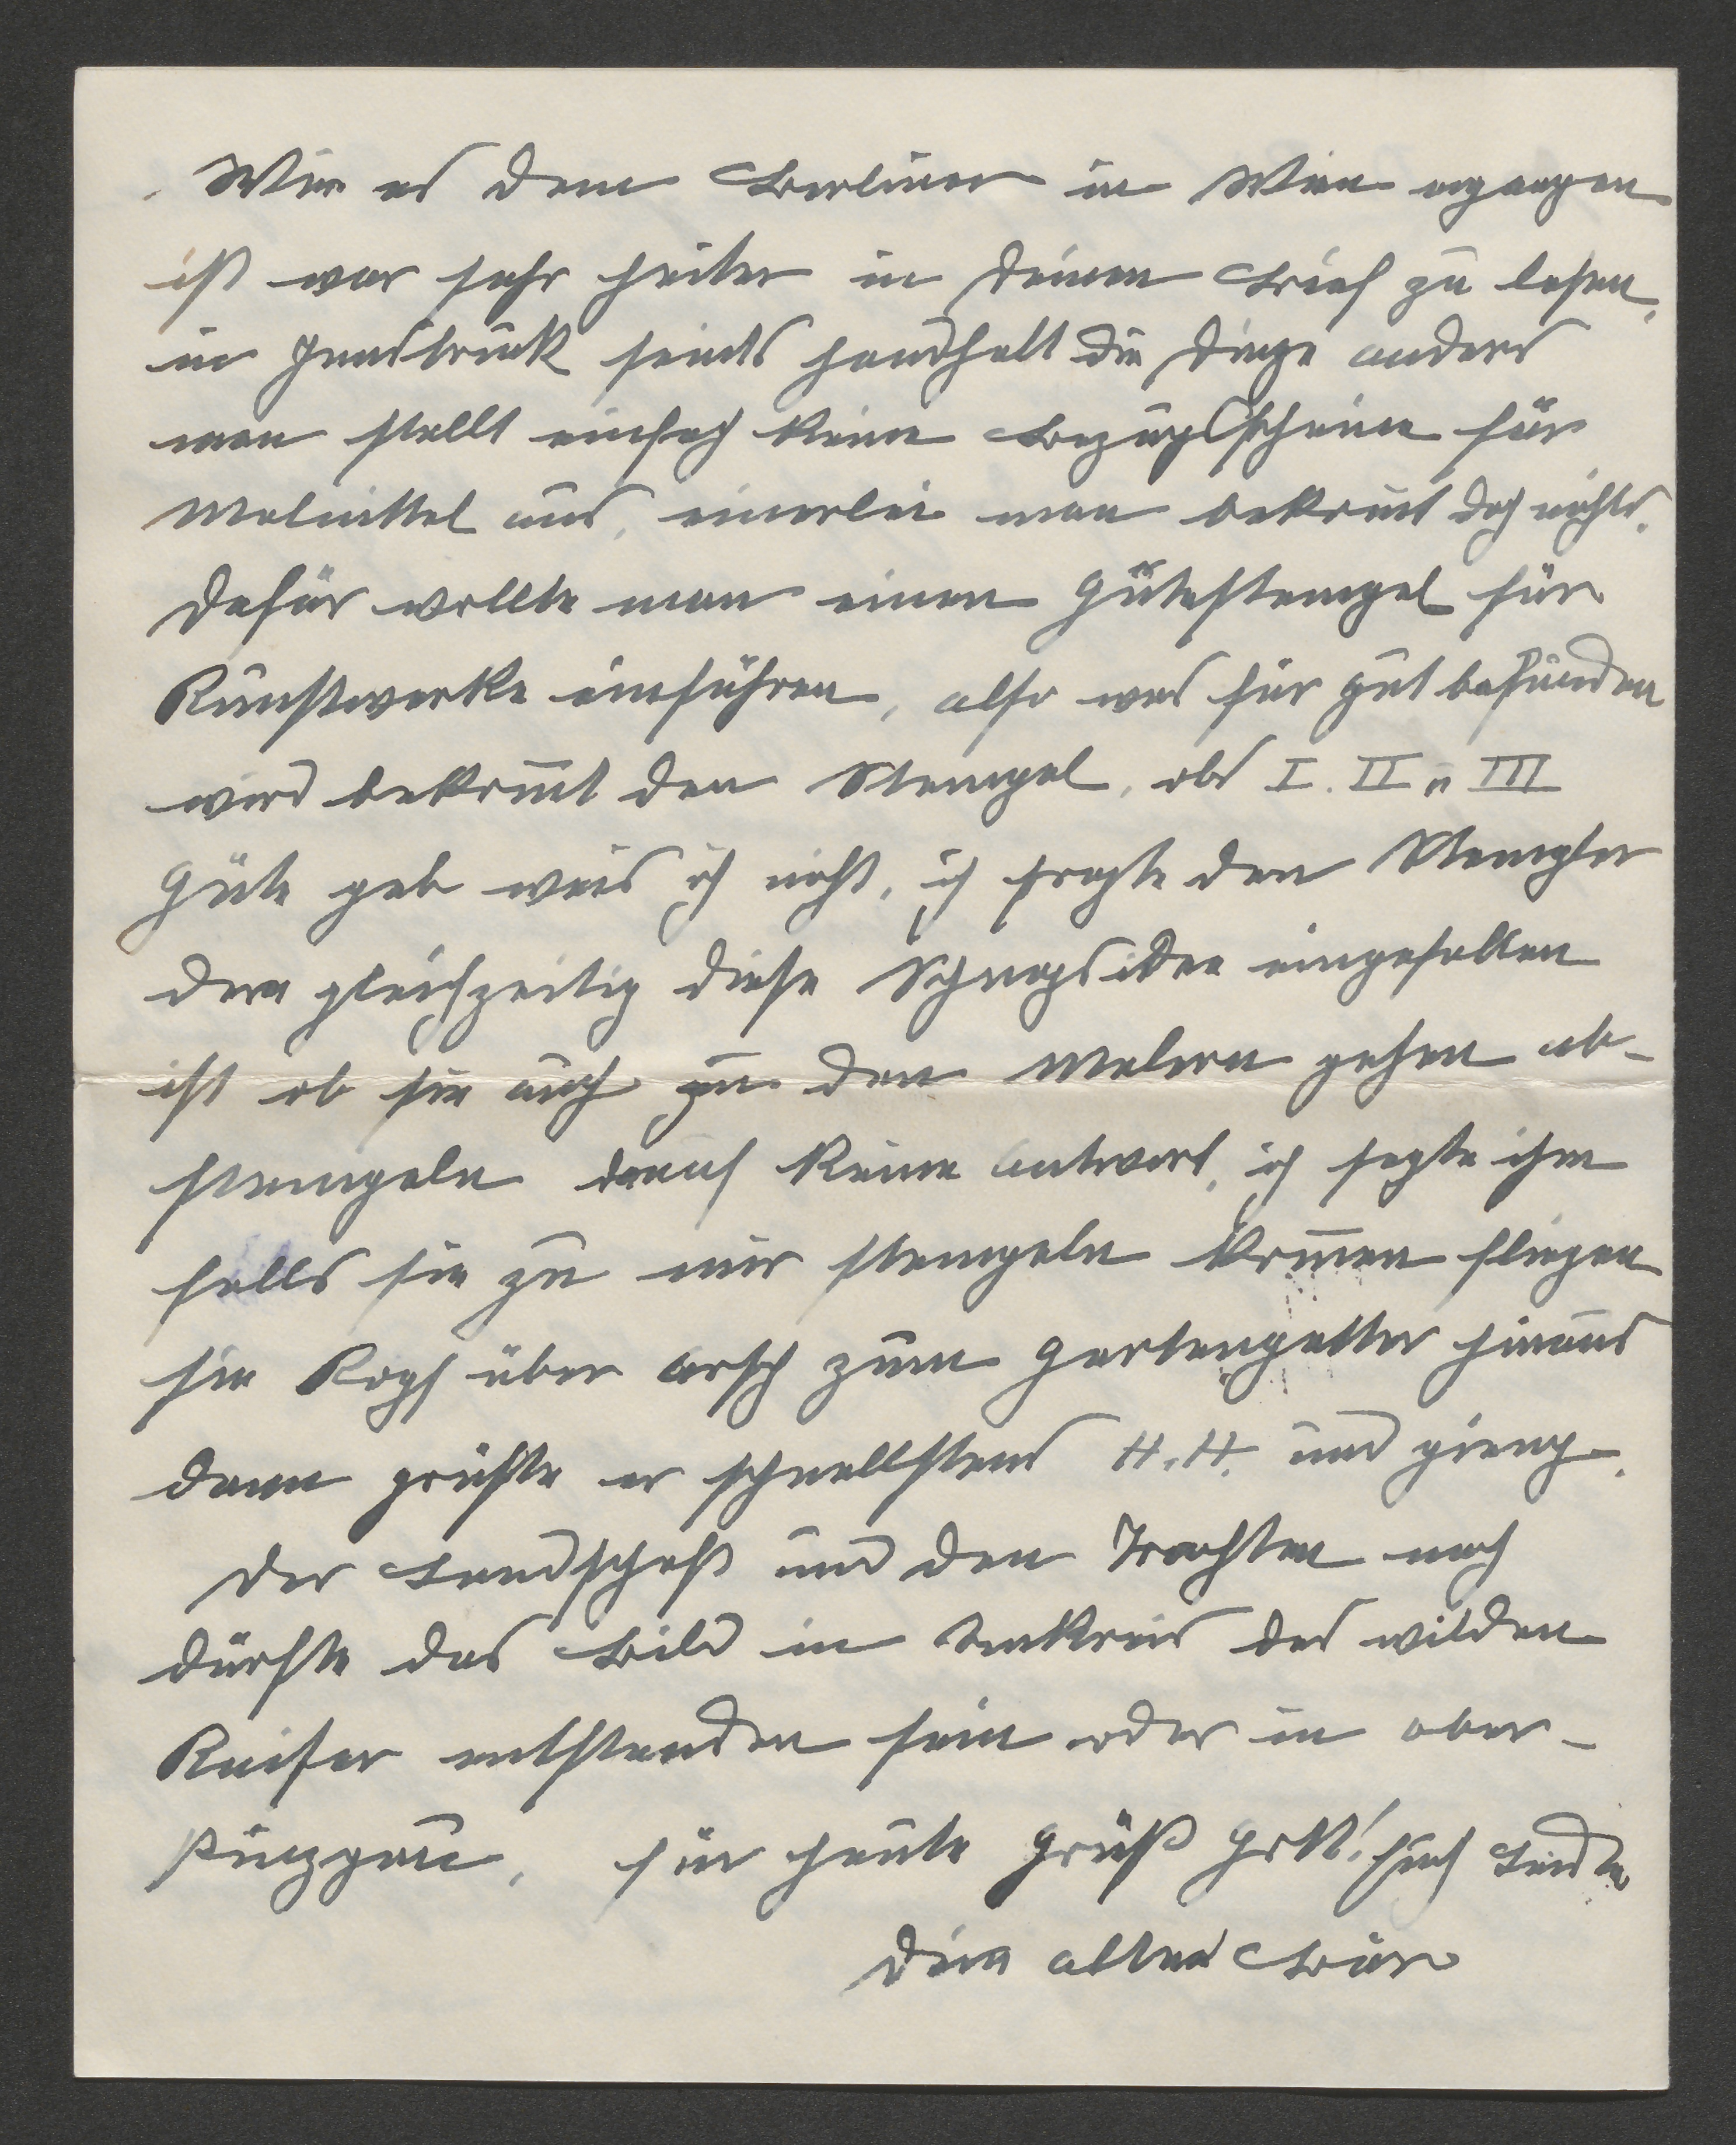 Wie es dem Berliner in Wien ergangen
ist war sehr heiter in Deinem Brief zu lesen,
in Innsbruck sinds handhalt die Dinge anders
man stellt einfach keine Bezugsscheine für
Malmittel aus, einerlei man bekom̄t doch nichts.
Dafür wollte man einen Gütestempel für
Kunstwerke einführen, also was für gut befunden
wird bekom̄t den Stempel, obs I. II u III
Güte geb weis ich nicht, ich fragte den Stempler
dem gleichzeitig diese Schnapsidee eingefallen
ist ob sie auch zu den Malern gehen ab-
stempeln darauf keine Antwort, ich sagte ihm
falls sie zu mir stempeln kom̄en fliegen
sie Kopf über Arsch zum Gartengatter hinaus
dann grüßte er schnellstens H.H. und gieng.
Der Landschaft und den Trachten nach
dürfte das Bild im Umkreis des wilden
Kaiser entstanden sein oder in Ober-
Pinzgau, für heute Grüß Gott!
Dein alter Bär